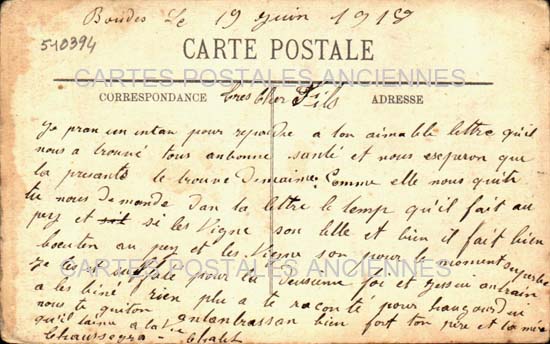 Boudes Le 19 Juin 1918
510394
CARTE POSTALE
CARTES POSTALES ANCIENNES
CORRESPONDANCE Cres Cher Fils ADRESSE
Je pran un intan pour repondre a ton aimable lettre qu'il
nous a trouvé tous anbonne santé et nous esperon que
la presante le trouve de maime. Comme elle nous quite
tu nous demande dan ta lettre le temp qu'il fait au
pey et si les Vigne son belle et bien il fait bien
boeuten au pey et les Vigne son pour le moment superbe
Je les sulfate pour la deusieme foi et
CARTES POSTALES ANCIENNES
a les biné rien plu a te raconté pour haujourdui
nous te quiton antanbrassan bien fort ton père et ta mère
qu'il taime a la Vie
Chaussegra - Chalet